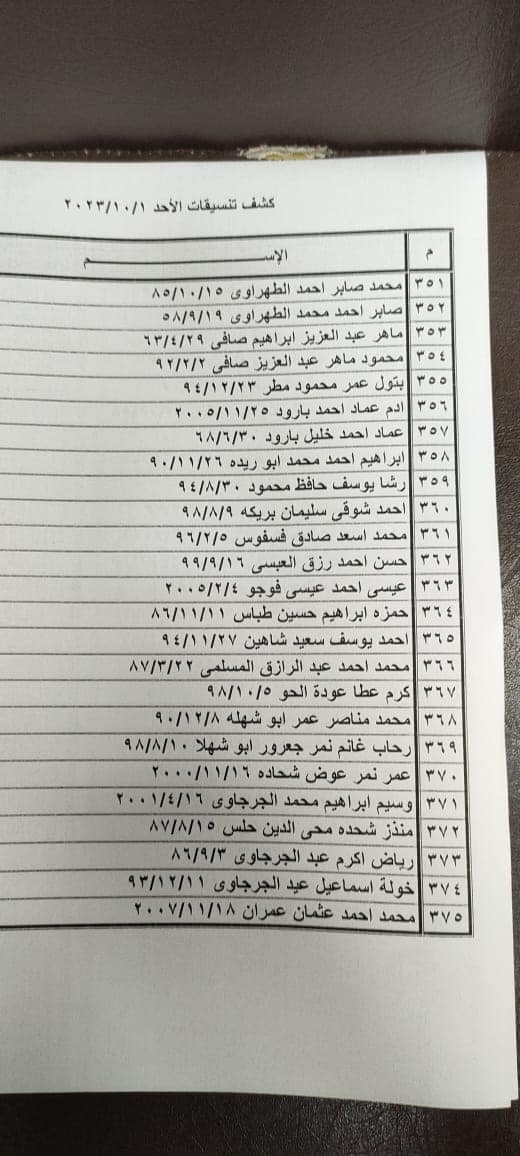 كشف تنسيقات الأحد ٢٠٢٣/١٠/١
م الإســـــم
٣٥١ محمد صابر احمد الطهراوى ٨٥/١٠/١٥
٣٥٢ صابر احمد محمد الطهراوى ٥٨/٩/١٩
٣٥٣ ماهر عبد العزيز ابراهيم صافى ٦٣/٤/٢٩
٣٥٤ محمود ماهر عبد العزيز صافى ٩٢/٢/٢
٣٥٥ بتول عمر محمود مطر ٩٤/١٢/٢٣
٣٥٦ ادم عماد احمد بارود ٢٠٠٥/١١/٢٥
٣٥٧ عماد احمد خليل بارود ٦٨/٦/٣٠
٣٥٨ ابراهيم احمد محمد ابو ريده ٩٠/١١/٢٦
٣٥٩ رشا يوسف حافظ محمود ٩٤/٨/٣٠
٣٦٠ احمد شوقى سليمان بريكه ٩٨/٨/٩
٣٦١ محمد اسعد صادق فسفوس ٩٦/٢/٥
٣٦٢ حسن احمد رزق العبسى ٩٩/٩/١٦
٣٦٣ عيسى احمد عيسى فوجو ٢٠٠٥/٢/٤
٣٦٤ حمزه ابراهيم حسين طباس ٨٦/١١/١١
٣٦٥ احمد يوسف سعيد شاهين ٩٤/١١/٢٧
٣٦٦ محمد احمد عبد الرازق المسلمى ٨٧/٣/٢٢
٣٦٧ كرم عطا عودة الحو ٩٨/١٠/٥
٣٦٨ محمد مناصر عمر ابو شهله ٩٠/١٢/٨
٣٦٩ رحاب غانم نمر جعرور ابو شهلا ٩٨/٨/١٠
٣٧٠ عمر نمر عوض شحاده ٢٠٠٠/١١/١٦
٣٧١ وسيم ابراهيم محمد الجرجاوى ٢٠٠١/٤/١٦
٣٧٢ منذز شحده محى الدين حلس ٨٧/٨/١٥
٣٧٣ رياض اكرم عبد الجرجاوى ٨٦/٩/٣
٣٧٤ خولة اسماعيل عيد الجرجاوى ٩٣/١٢/١١
٣٧٥ محمد احمد عثمان عمران ٢٠٠٧/١١/١٨